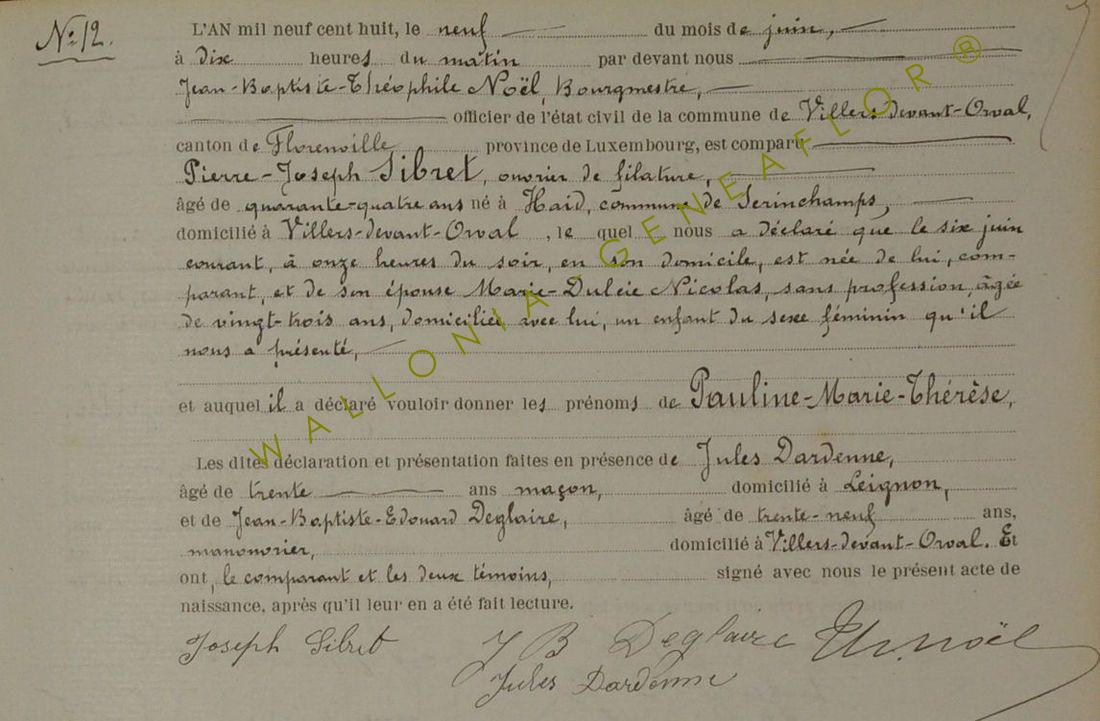 N° 12.
L'AN mil neuf cent huit, le neuf du mois de juin,
à dix heures du matin par devant nous
Jean-Baptiste-Théophile Noël, Bourgmestre,
officier de l'état civil de la commune de Villers-devant-Orval,
canton de Florenville province de Luxembourg, est comparu
Pierre-Joseph Sibret, ouvrier de filature,
âgé de quarante-quatre ans né à Haid, commune de Serinchamps,
domicilié à Villers-devant-Orval, le quel nous a déclaré que le six juin
courant, à onze heures du soir, en son domicile, est née de lui, com-
parant, et de son épouse Marie-Dulcie Nicolas, sans profession, âgée
de vingt-trois ans, domiciliée avec lui, un enfant du sexe féminin qu'il
nous a présenté,
et auquel il a déclaré vouloir donner les prénoms de Pauline-Marie-Thérèse,
Les dites déclaration et présentation faites en présence de Jules Dardenne,
âgé de trente ans maçon, domicilié à Leignon,
et de Jean-Baptiste-Edouard Deglaire, âgé de trente-neuf ans,
manouvrier, domicilié à Villers-devant-Orval. Et
ont, le comparant et les deux témoins, signé avec nous le présent acte de
naissance, après qu'il leur en a été fait lecture.
Joseph Sibret J B Deglaire Th. Noël
Jules Dardenne
WALLONIA-GENEAFLOR®